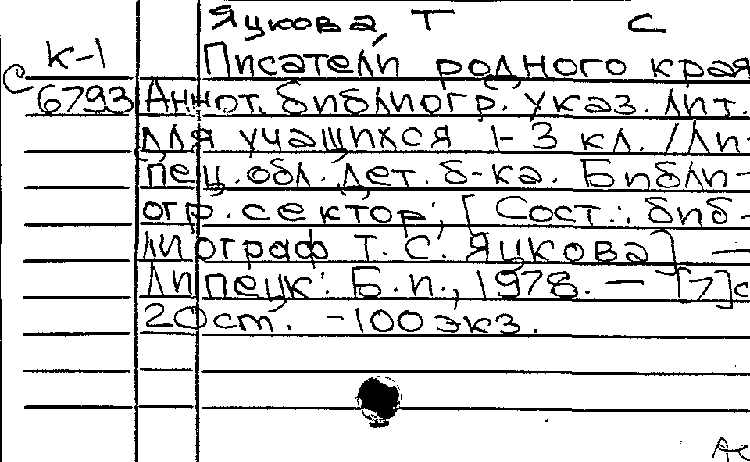 Яцкова, Т С
К-1 Писатели родного края
С 6793 Аннот. библиогр. указ. лит.
для учащихся 1-3 кл. / Ли-
пец. обл. дет. б-ка. Библи-
огр. сектор; [Сост.: биб-
лиограф Т. С. Яцкова] —
Липецк: Б. и., 1978. — [7] с
20 ст. - 100 экз.